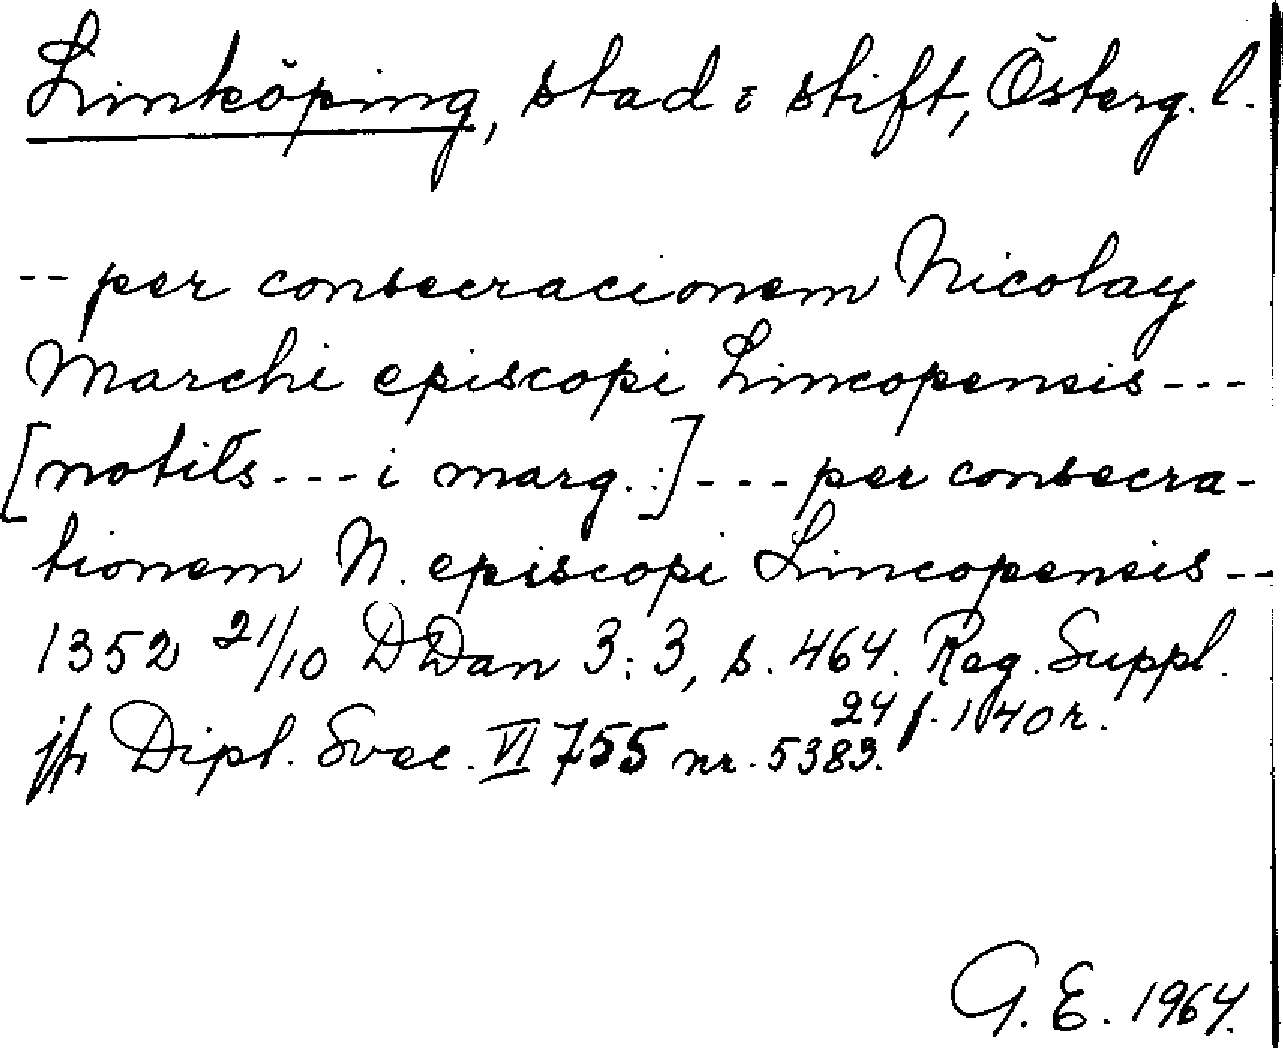 Linköping, stad o stift, Österg. l.
-- per consecracionem Nicolay
Marchi episcopi Lincopensis ---
[notils --- i marg. :] --- per consecra-
tionem N. episcopi Lincopensis --
1352 21/10 DDan 3:3, s. 464. Reg. Suppl.
24 f. 140 r.
jfr Dipl. Svec. VI 755 nr. 5383.
G. E. 1964.